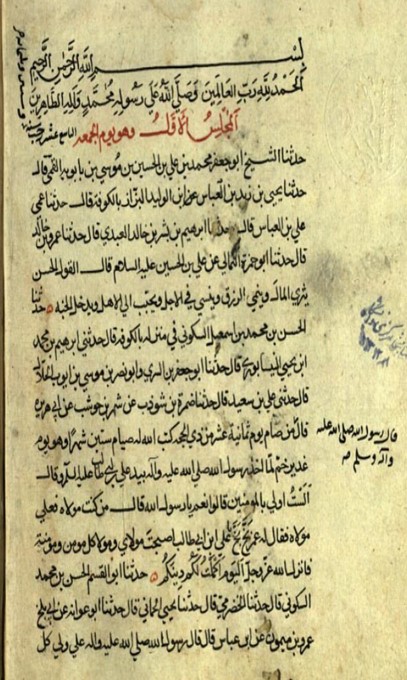 بسم الله الرحمن الرحيم
الحمد لله رب العالمين وصلى الله على رسوله محمد وآله الطاهرين
المجلس الاول وهو يوم الجمعه
حدثنا الشيخ ابو جعفر محمد بن علي بن الحسين بن موسي بن بابويه القمي قال
حدثنا يحيى بن زيد بن العباس بن الوليد البزاز بالكوفة قال حدثنا عمي
علي بن العباس قال حدثنا ابرهيم بن بشر بن خالد العبدي قال حدثنا عمرو بن خالد
قال حدثنا ابو حمزة الثمالي عن علي بن الحسين عليه السلام قال القول الحسن
يثري المال وينمي الرزق وينسي في الاجل ويحبب الى الاهل ويدخل الجنه حدثنا
الحسن بن محمد بن اسمعيل السكوني في منزله بالكوفة قال حدثني ابرهيم بن محمد
ابن يحيى النيسابوري قال حدثنا ابو جعفر بن السري وابو نصر بن موسي بن ايوب
قال حدثني علي بن سعيد قال حدثنا ضمرة بن شوذب عن شهر بن حوشب عن ابي هريره
قال من صام يوم ثمانية عشر من ذي الحجه كتب الله له صيام ستين شهرا وهو يوم
غدير خم لما اخذ رسول الله صلي الله عليه وآله بيد علي بن ابي طالب عليه السلم وقال
الست اولي بالمومنين قالوا نعم يا رسول الله قال من كنت مولاه فعلي
مولاه فقال له عمر بخ بخ يا علي ابن ابي طالب اصبحت مولاي ومولا كل مومن ومومنة
فانزل الله عز وجل اليوم اكملت لكم دينكم حدثنا ابو القسم الحسن بن محمد
السكوني قال حدثنا الحضرمي قال حدثنا يحيى الحماني قال حدثنا ابو عوانه عن ابي بلج
عمرو بن ميمون عن ابن عباس قال قال رسول الله صلى الله عليه واله علي ولي كل
قال رسول الله صلى الله عليه
وآله وسلم صه